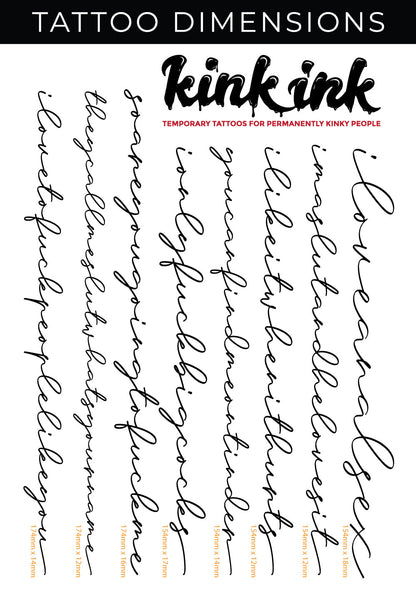 TATTOO DIMENSIONS
kink ink
TEMPORARY TATTOOS FOR PERMANENTLY KINKY PEOPLE
ilovetofuckpeoplelikeyou
theycallmeslutwhatsyourname
soareyougoingtofuckme
ionlyfuckbigcocks
youcanfindmeontinder
ilikeitwhenithurts
imaslutandhelovesit
iloveanalsex
174mm x 14mm
174mm x 12mm
174mm x 16mm
154mm x 17mm
154mm x 14mm
154mm x 12mm
154mm x 12mm
154mm x 18mm